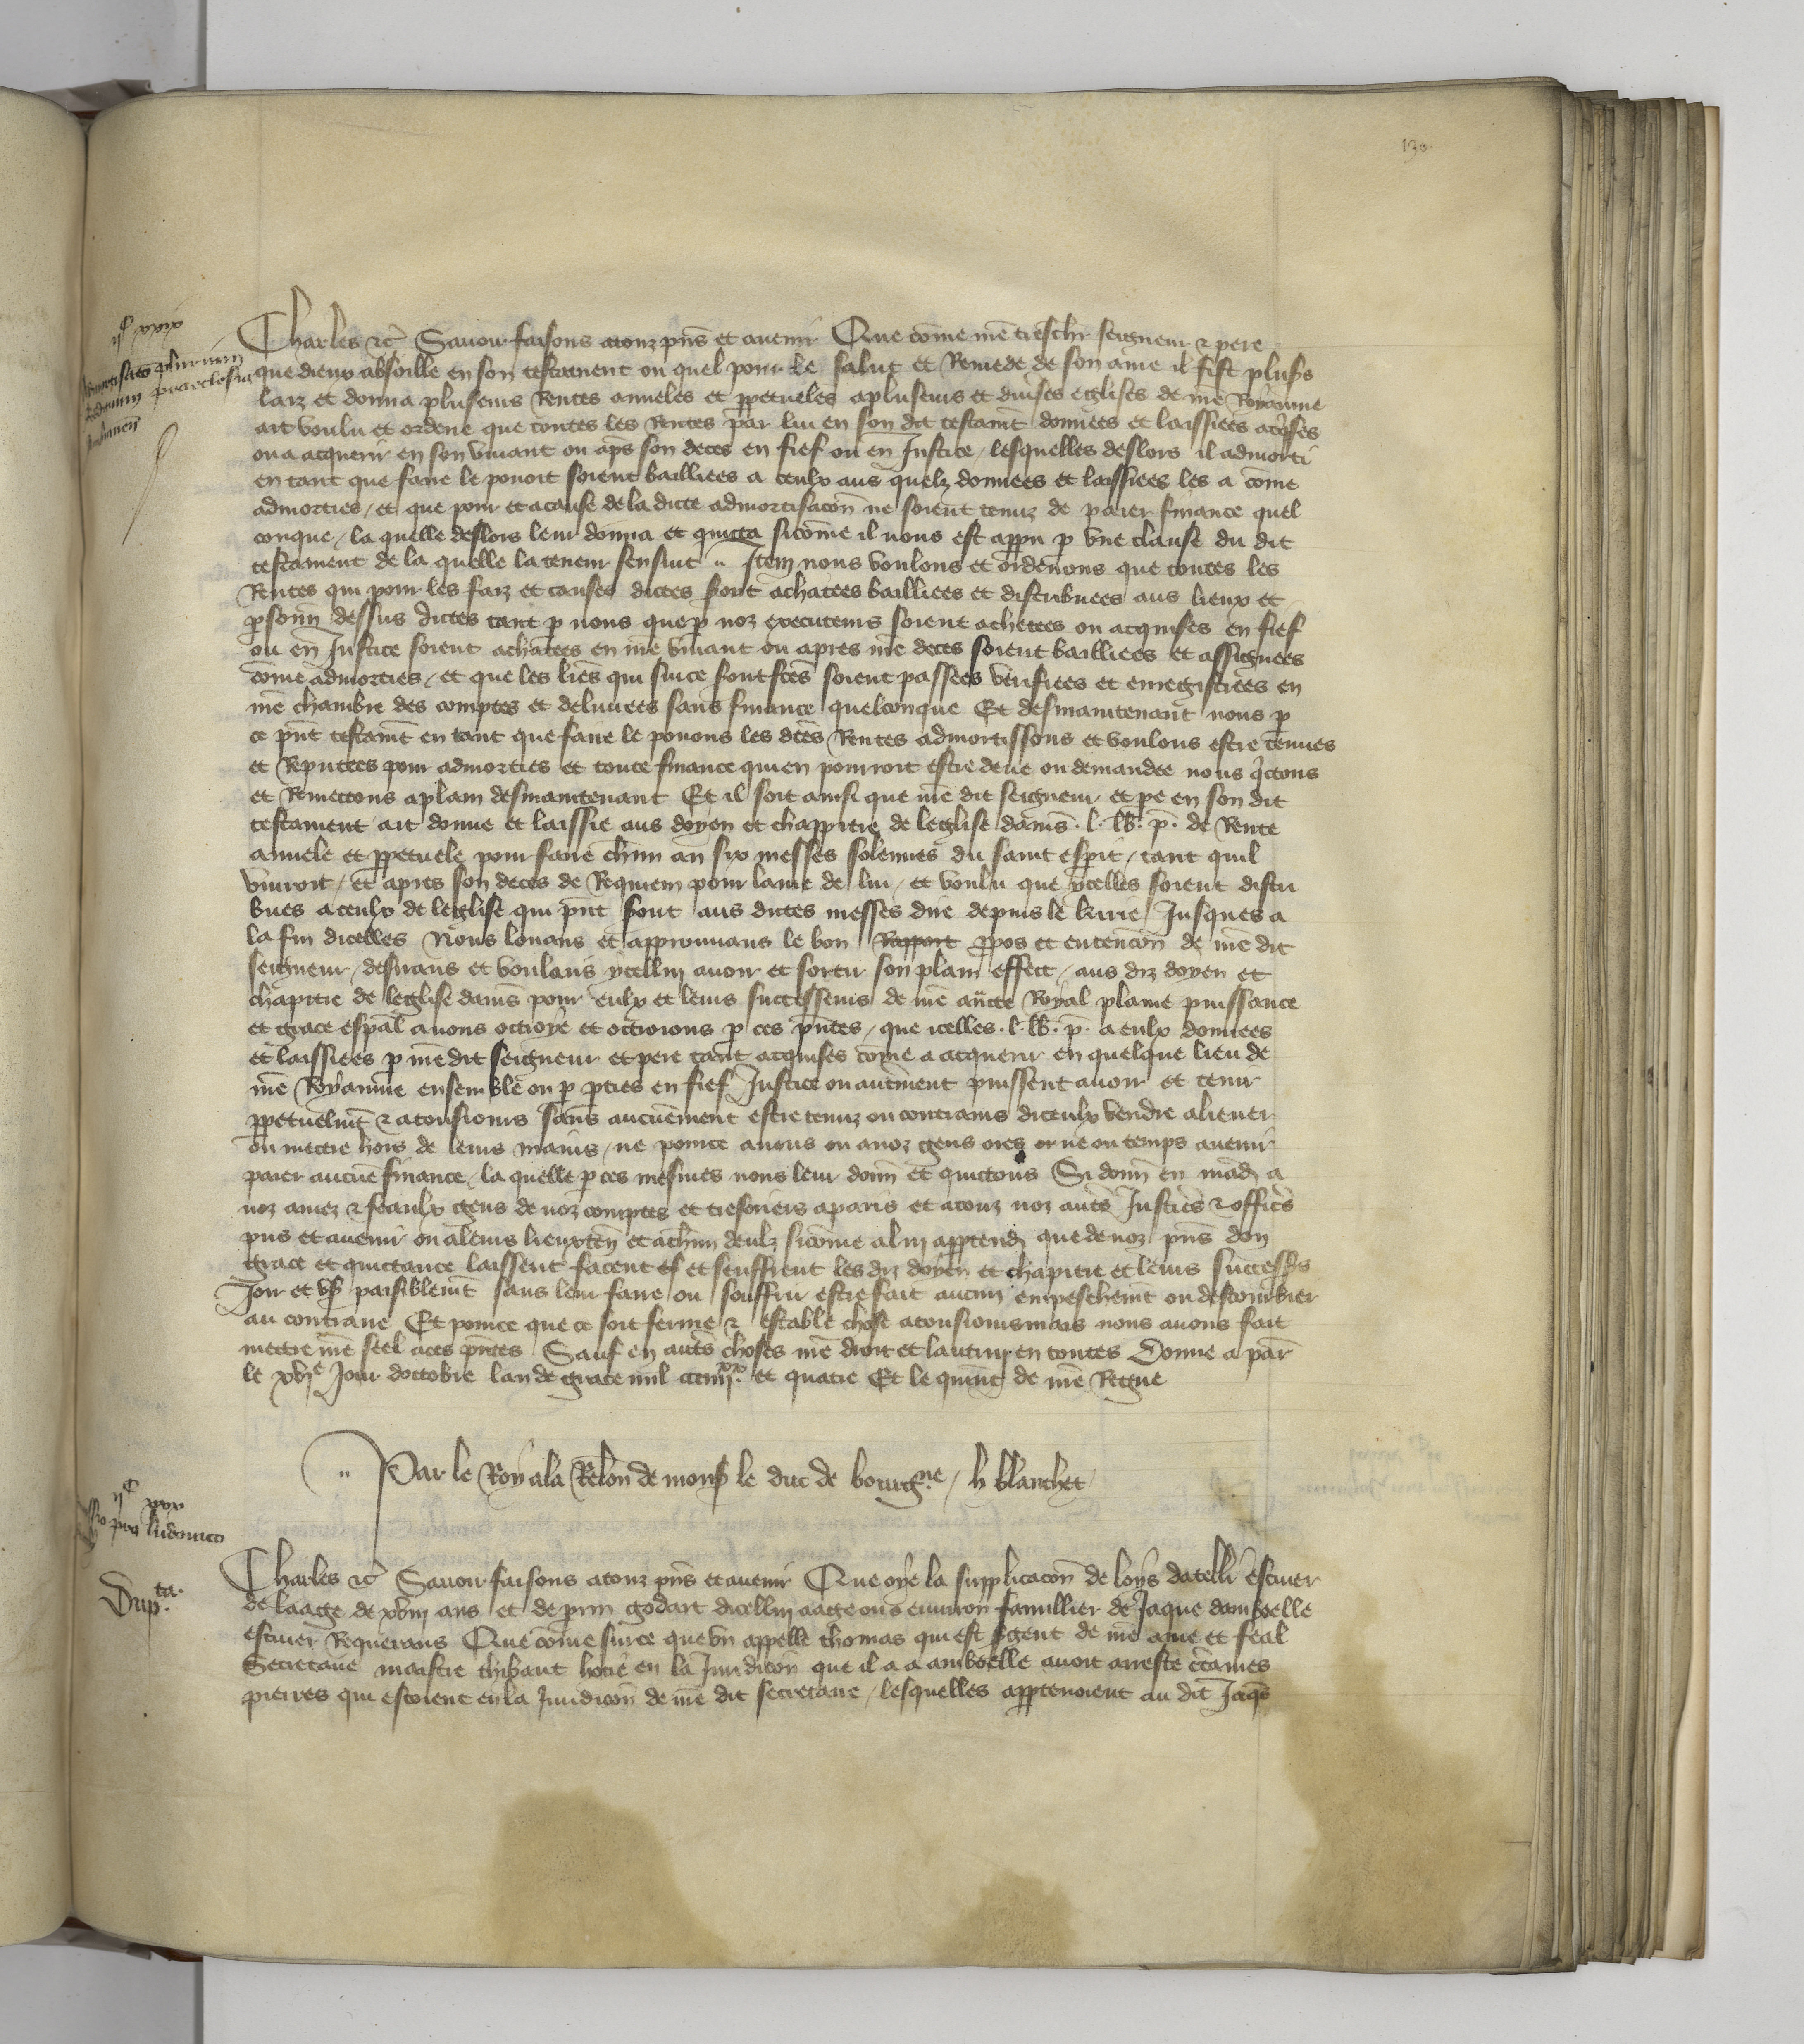 130
Charles etc̃ Sauoir faisons atouz pñs et auenir Que cõme nr̃e treschr seigneur & pere
que dieux absoille en son testament ou quel pour le salut et Remede de son ame il fist plus͛s
laiz et donna pluseurs Rentes anneles et ꝑpetueles a pluseurs et diu͛ses eglises de nr̃e Royaume
ait voulu et ordene que toutes les Rentes par lui en son dit testam̃t donnees et laissiees acq̃ses
ou a acquerir en son viuant ou ap̃s son deces en fief ou en Justice / lesquelles deslors il admorti
en tant que faire le pouoit soient bailliees a ceulx aus quelz donnees et laissiees les a cõme
admorties / et que pour et a cause de la dicte admortisacõn ne soient tenuz de paier finance quel
conque / la quelle deslors leur donna et quicta sicõme il nous est apparu ꝑ vne clause du dit
testament de la quelle la teneur sensuit .. Item nous voulons et ordenons que toutes les
Rentes qui pour les faiz et causes dictes sont achatees bailliees et distribuees aus lieux et
ꝑsonñ dessus dictes tant ꝑ nous que ꝑ noz executeurs soient achetees ou acquises en fief
ou en Justice soient achatees en nr̃e viuant ou apres nr̃e deces soient bailliees et assignees
cõme admorties / et que les lr̃es qui sur ce sont fctẽs soient passees verifiees et enregistrees en
nr̃e chambre des comptes et deliurees sans finance quelconque Et desmaintenant nous ꝑ
ce pñt testam̃t en tant que faire le pouons les dctẽs Rentes admortissons et voulons estre tenues
et Reputees pour admorties et toute finance qui en pourroit estre deue ou demandee nous q̃ctons
et Remectons aplain desmaintenant Et il soit ainsi que nr̃e dit seigneur et pe en son dit
testament ait donne et laissie aus doyen et chappitre de leglise damiẽs .l. lb̃. p̃. de Rente
annele et ꝑpetuele pour faire chũn an six messes solennes du saint esperit / tant quil
viuroit / et apres son deces de Requiem pour lame de lui / et voulu que ycelles soient distri
buees a ceulx de leglise qui pñt sont aus dictes messes dire depuis le kirie Jusques a
la fin dicelles Nous louans et approuuans le bon Rapport ꝓpos et entencõn de nr̃e dit
seigneur / desirans et voulans ycellui auoir et sortir son plain effect / aus diz doyen et
chapitre de leglise damiẽs pour eulx et leurs successeurs de nr̃e auc̃te Royal plaine puissance
et grace esp̃al auons octroye et octroions ꝑ ces pñtes / que icelles .l. lb̃. p̃. a eulx donnees
et laissiees ꝑ nr̃e dit seigneur et pere tant acquises cõme a acquerir en quelque lieu de
nr̃e Royaume ensemble ou ꝑ ꝑties en fief Justice ou autrement puissent auoir et tenir
ꝑpetuelm̃t & atousiours sans aucunement estre tenuz ou contrains diceulx vendre aliener
ou mettre hors de leurs mains / ne pour ce a nous ou a noz gens ores or ne ou temps auenir
paier aucũe finance / la quelle ꝑ ces mesmes nous leur donñ et quictons Si donñ en mãd a
noz amez & feaulx gens de noz comptes et tresoriers a paris et atouz noz aut̃s Justic̃s & offic̃s
pñs et auenir ou a leurs lieuxteñ et a chũn deulz sicõme a lui appartend̃ que de noz pñs don
grace et quictance laissent facent et seuffrent les diz doyen et chapitre et leurs success̃s
Joir et vs͛ paisiblem̃t sans leur faire ou souffrir estre fait aucun empeschem̃t ou destourbier
au contraire Et pour ce que ce soit ferme & estable chose atousioursmais nous auons fait
mettre nr̃e seel a ces pñtes Sauf en aut̃s choses nr̃e droit et lautruy en toutes Donne a par̃
le xvjᵉ Jour doctobre lan de grace mil ccc iiijˣˣ. et quatre Et le quint de nr̃e Regne
.. Par le Roy a la Relõn de monſ le duc de bourgⁿᵉ. / h blanchet
Dupᵗᵃ.
Charles etc̃ Sauoir faisons atouz pñs et auenir Que oye la supplicacõn de loys datelli escuier
de laage de xviij ans et de ꝑrin godart dicellui aage ou enuiron familier de Jaque damboelle
escuier Requerans Que cõme sur ce que vn appelle thomas qui est s͛gent de nr̃e ame et feal
Secretaire maistre thibaut hocie en la Juridicõn que il a a amboelle auoit arreste c̃taines
pierres qui estoient en la Juridicõn de nr̃e dit secretaire / lesquelles appartenoient au dit Jaq̃s